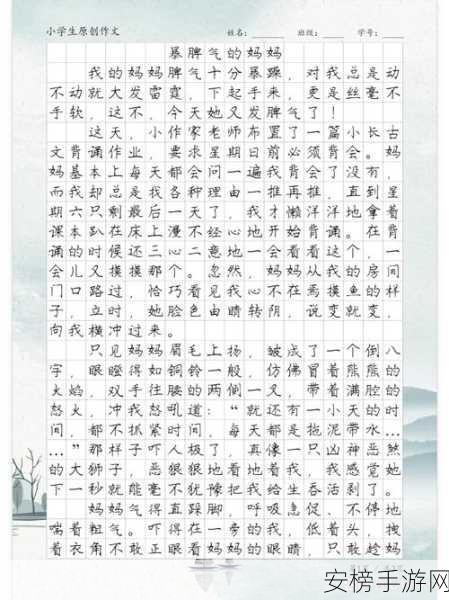 小学生原创作文 姓名: 班级: 学号:
暴脾气的妈妈
我的妈妈脾气十分暴躁，对我总是动
不动就大发雷霆，下起手来，更是丝毫不
手软，这不，今天她又发脾气了！
这天，小作家老师布置了一篇小长古
文背诵作业，要求星期日前必须背会。妈
妈基本上每天都会问一遍我背会了没有，
而我却总是找各种理由一推再推，直到星
期六只剩最后一天了，我才懒洋洋地拿着
课本趴在床上漫不经心地开始背诵。在背
诵的时候还三心二意地一会看看这个，一
会儿又摸摸那个。忽然，妈妈从我的房间
门口路过，恰巧看见我心不在焉摸鱼的样
子，立时，她脸色由晴转阴，说变就变，
向我横冲过来。
只见妈妈眉毛上扬，皱成了一个倒八
字，眼瞪得如铜铃一般，仿佛冒着熊熊的
火焰，双手往腰的两侧一叉，带着满腔的
怒火，冲我怒吼道：“就还有一小天的时
间，都不抓紧时间，每天都是拖泥带水…
…”那样子吓人极了，真像一只凶神恶煞
的大狮子，恶狠狠地看地着我，我感觉她
下一秒就能毫不犹豫把我给生吞活剥了。
妈妈气得直跺脚，呼吸急促、不停地
喘着粗气。吓得在一旁的我，低着头，拽
着衣角不敢正眼看妈妈的眼睛，只敢趁妈
安榜手游网